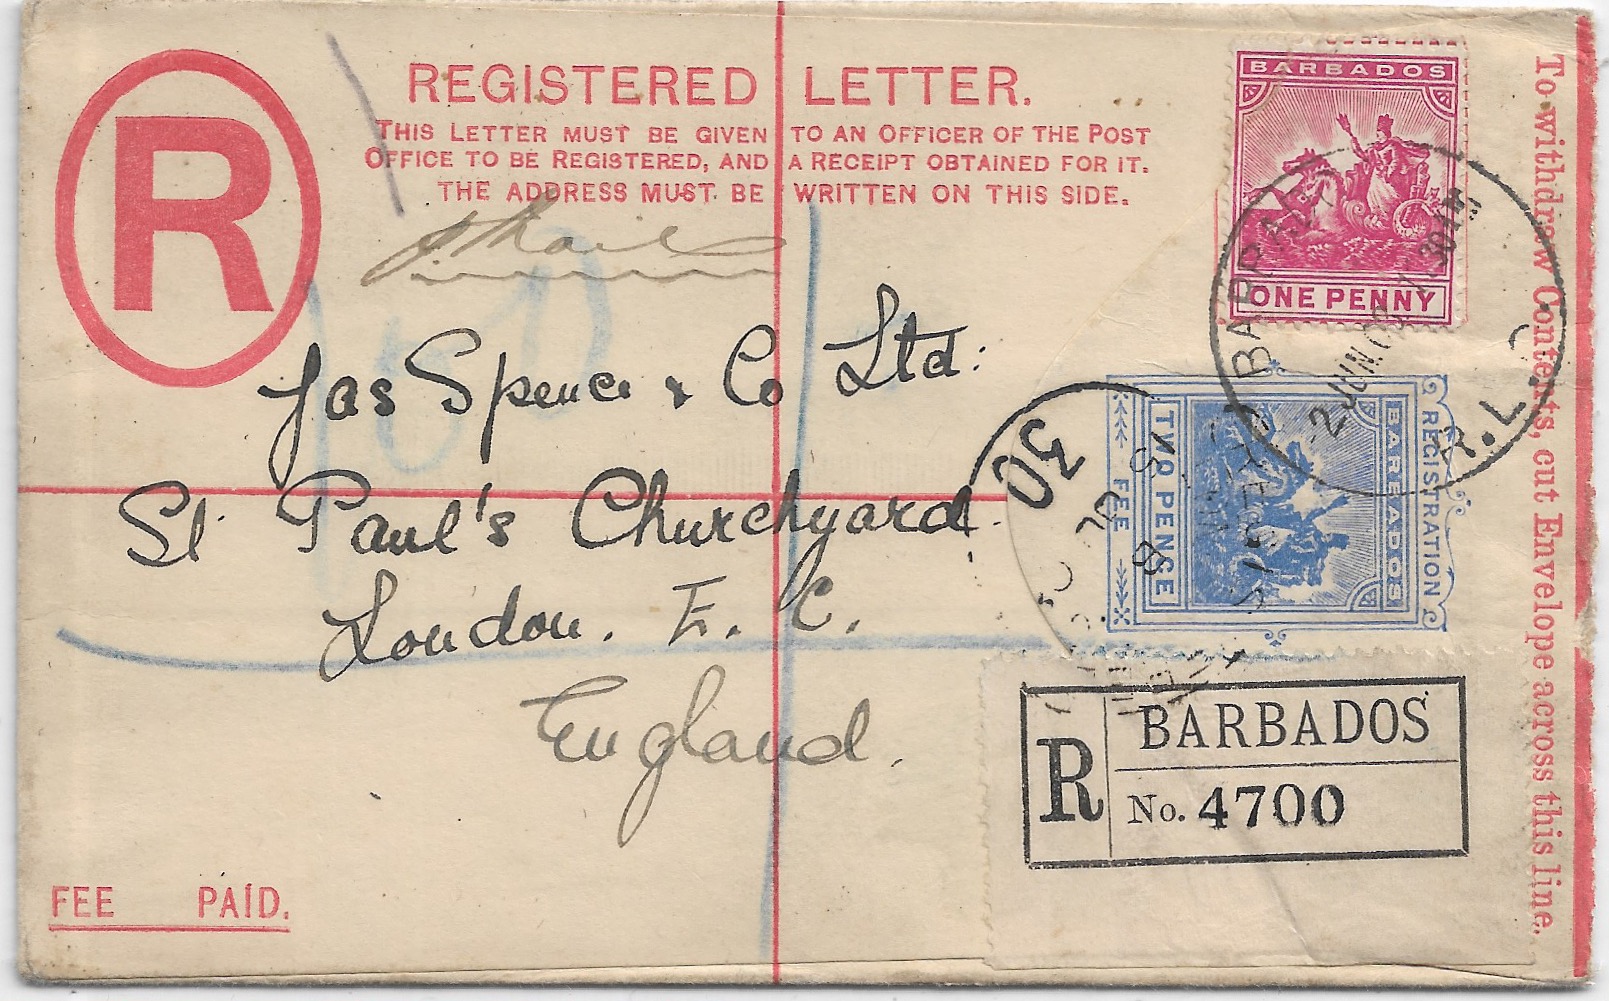 REGISTERED LETTER.
THIS LETTER MUST BE GIVEN TO AN OFFICER OF THE POST
OFFICE TO BE REGISTERED, AND A RECEIPT OBTAINED FOR IT.
THE ADDRESS MUST BE WRITTEN ON THIS SIDE.
R
BARBADOS
ONE PENNY
To withdraw Contents, cut Envelope across this line.
Jas Spence & Co Ltd:
St Paul's Churchyard
London. E. C.
England.
REGISTRATION
BARBADOS
TWO PENCE
FEE
BARBADOS
R.L.O
2 JUN 09
30
R
BARBADOS
No. 4700
FEE PAID.